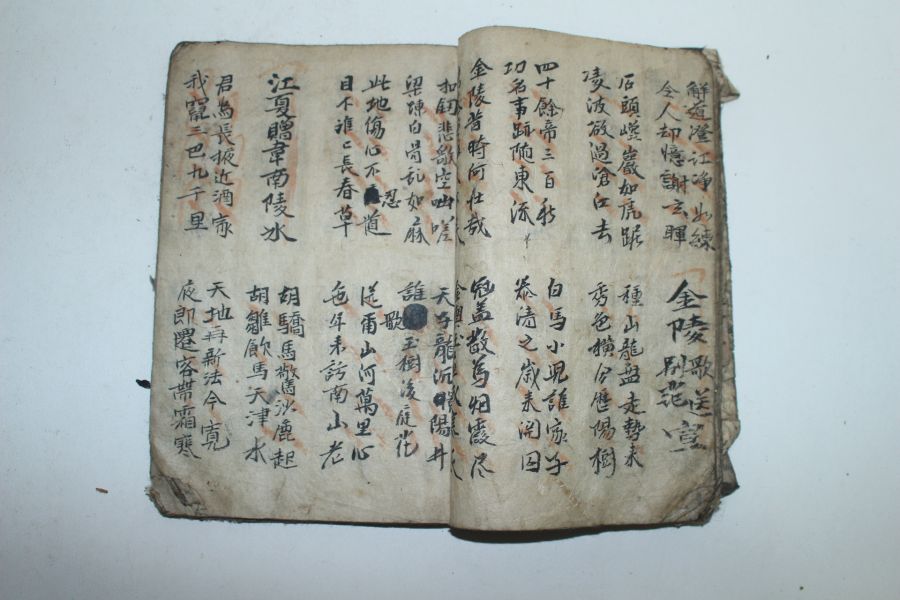 解道澄江净如練
令人却憶謝玄暉
金陵歌送宣
別范
石頭巉巖如虎踞
凌波欲過滄江去
種山龍盤走勢来
秀色橫分歷陽樹
四十餘帝三百秋
功名事跡随東流
白馬小児誰家子
泰清之歲来関囚
金陵昔時何壮哉
冠盖散為烟霞尽
扣釼悲歌空咄嗟
梁陳白骨乱如麻
天子龍沉景陽井
誰歌玉樹後庭花
此地傷心不忍道
目下離〻長春草
送爾山河萬里心
他年来訪南山老
江夏贈韋南陵氷
胡驕馬驚沙塵起
胡雛飲馬天津水
君為長掖近酒泉
我竄三巴九千里
天地再新法令寬
夜郎遷客帶霜寒